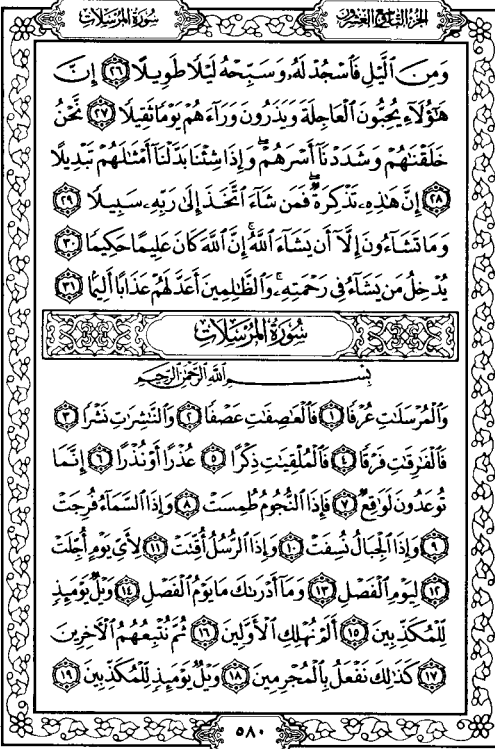 سُورَةُ المُرْسَلَات
الجزءُ التَّاسِعُ وَالعِشْرُون
وَمِنَ ٱلَّيْلِ فَٱسْجُدْ لَهُۥ وَسَبِّحْهُ لَيْلًا طَوِيلًا ٢٦ إِنَّ
هَٰٓؤُلَآءِ يُحِبُّونَ ٱلْعَاجِلَةَ وَيَذَرُونَ وَرَآءَهُمْ يَوْمًا ثَقِيلًا ٢٧ نَّحْنُ
خَلَقْنَٰهُمْ وَشَدَدْنَآ أَسْرَهُمْ ۖ وَإِذَا شِئْنَا بَدَّلْنَآ أَمْثَٰلَهُمْ تَبْدِيلًا
٢٨ إِنَّ هَٰذِهِۦ تَذْكِرَةٌ ۖ فَمَن شَآءَ ٱتَّخَذَ إِلَىٰ رَبِّهِۦ سَبِيلًا ٢٩
وَمَا تَشَآءُونَ إِلَّآ أَن يَشَآءَ ٱللَّهُ ۚ إِنَّ ٱللَّهَ كَانَ عَلِيمًا حَكِيمًا ٣٠
يُدْخِلُ مَن يَشَآءُ فِى رَحْمَتِهِۦ ۚ وَٱلظَّٰلِمِينَ أَعَدَّ لَهُمْ عَذَابًا أَلِيمًۢا ٣١
سُورَةُ المُرْسَلَات
بِسْمِ ٱللَّهِ ٱلرَّحْمَٰنِ ٱلرَّحِيمِ
وَٱلْمُرْسَلَٰتِ عُرْفًا ١ فَٱلْعَٰصِفَٰتِ عَصْفًا ٢ وَٱلنَّٰشِرَٰتِ نَشْرًا ٣
فَٱلْفَٰرِقَٰتِ فَرْقًا ٤ فَٱلْمُلْقِيَٰتِ ذِكْرًا ٥ عُذْرًا أَوْ نُذْرًا ٦ إِنَّمَا
تُوعَدُونَ لَوَٰقِعٌ ٧ فَإِذَا ٱلنُّجُومُ طُمِسَتْ ٨ وَإِذَا ٱلسَّمَآءُ فُرِجَتْ
٩ وَإِذَا ٱلْجِبَالُ نُسِفَتْ ١٠ وَإِذَا ٱلرُّسُلُ أُقِّتَتْ ١١ لِأَىِّ يَوْمٍ أُجِّلَتْ
١٢ لِيَوْمِ ٱلْفَصْلِ ١٣ وَمَآ أَدْرَىٰكَ مَا يَوْمُ ٱلْفَصْلِ ١٤ وَيْلٌ يَوْمَئِذٍ
لِّلْمُكَذِّبِينَ ١٥ أَلَمْ نُهْلِكِ ٱلْأَوَّلِينَ ١٦ ثُمَّ نُتْبِعُهُمُ ٱلْءَاخِرِينَ
١٧ كَذَٰلِكَ نَفْعَلُ بِٱلْمُجْرِمِينَ ١٨ وَيْلٌ يَوْمَئِذٍ لِّلْمُكَذِّبِينَ ١٩
٥٨٠